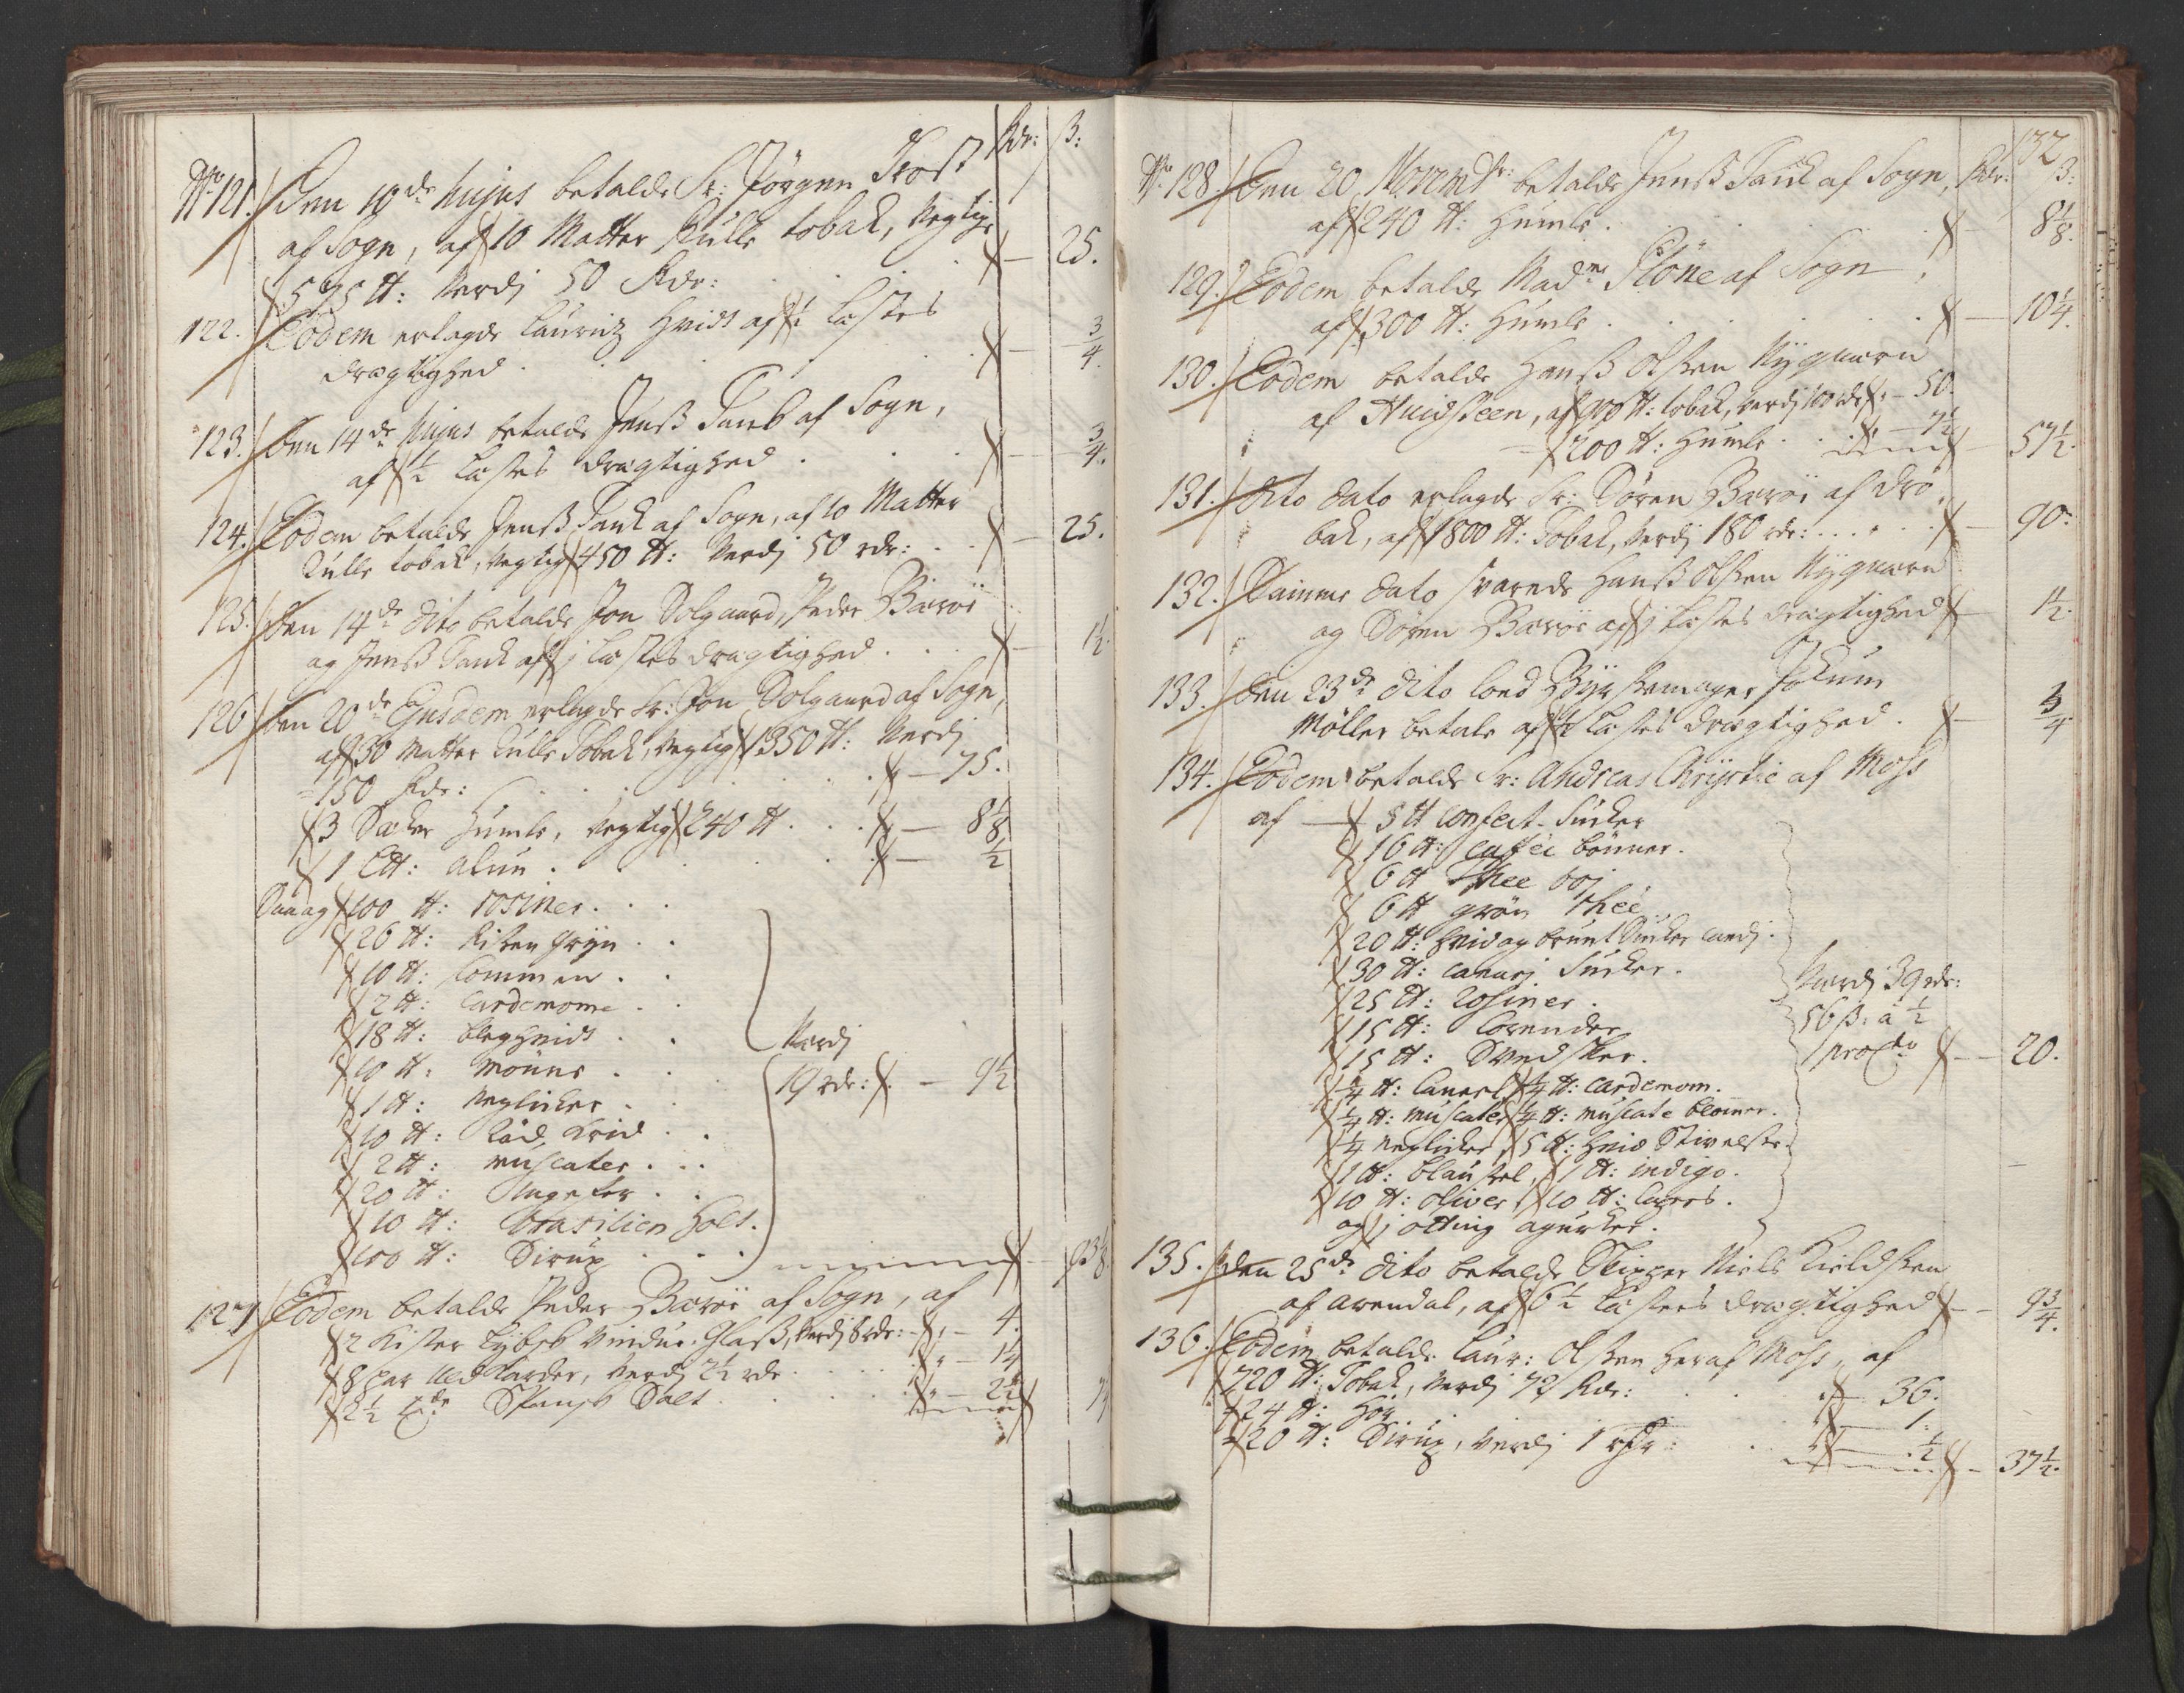 Rdr: ß:
No 121. Den 10de hujus betalde Sr: Jørgen Trost
af Sogn, af 10 Matter Rulle tobak, Vegtig
575 ℔: Verdj 50 Rdr: . . . 25.
122. Eodem erlagde Lauritz Hvidt af ½ Læstes
drægtighed . . . ¾.
123. Den 14de hujus betalde Jenß Tank af Sogn,
af ½ Læstes drægtighed . . . ¾.
124. Eodem betalde Jenß Tank af Sogn, af 10 Matter
Rulle tobak, Vegtig 450 ℔: Verdj 50 rdr: . . 25.
125. Den 14de dito betalde Jon Dolgaard, Peder Barøe
og Jenß Tank af j Læstes drægtighed . . . 1½.
126. Den 20de Ejusdem erlagde Sr: Jon Dolgaard af Sogn,
af 30 Matter Rulle Tobak, Vegtig 1350 ℔: Verdj
150 Rdr: . . . 75.
3 Sæcker Humle, Vegtig 240 ℔ . . . 8⅛
1 L℔: alun . . . ½
Saa og 100 ℔: rosiner . . .
26 ℔: Risengryn . .
10 ℔: Commen . .
2 ℔: Cardemome . .
18 ℔: bleghvidt . .
10 ℔: Mønne . .
1 ℔: Neglicker . .
10 ℔: Rød Krid . .
2 ℔: Muscater . . .
20 ℔: Ingefer . .
10 ℔: brasilien Holt.
100 ℔: Sirup . . .
Værdj
19 rdr: 9½
93⅛.
127. Eodem betalde Peder Barøe af Sogn, af
2 Kister Lybsk Vindue Glaß, Verdj 8 rdr: 4.
8 par Uld Karder, Verdj 2½ rdr . . 1¼
2½ Tde Spansk Salt . . . 2½
132
No 128. Den 20. Novembr: betalde Jenß Tank af Sogn, Rdr: ß:
af 240 ℔: Humle . . . 8⅛.
129. Eodem betalde Madme Pløne af Sogn
af 300 ℔: Humle . . . 10¼.
130. Eodem betalde Hanß Olßen Nyquarn
af Huidsteen, af 900 ℔: tobak, Verdj 100 rdr 50.
200 ℔: Humle . . . 7½ 57½.
131. dito dato erlagde Sr: Søren Barøe af Drø-
bak, af 1800 ℔: Tobak, Verdj 180 rdr: . . . 90.
132. Samme dato svarede Hanß Olßen Nyquarn
og Søren Barøe af j Læstes drægtighed 1½.
133. Den 23de dito loed Bygßemager Jokum
Møller betale af ½ Læstes drægtighed . ¾
134. Eodem betalde Sr: Andreas Chrystie af Moss
af 8 ℔ Confect-Sucker
16 ℔: Caffei bønner.
6 ℔ Thee boj
6 ℔ grøn Thée
20 ℔: hvid og brunt Sucker candj.
30 ℔: Canarj Sucker.
25 ℔: Rosiner.
15 ℔: Corender
15 ℔: Svedsker.
¼ ℔: Caneel, ¼ ℔: Cardemom.
¼ ℔: Muscater, ¼ ℔: muscate blomer.
¼ Neglicker, 5 ℔: hvid Stivelse.
1 ℔: blaustel, 1 ℔: indigo.
10 ℔: Oliver, 10 ℔: Capers.
og j otting agurker.
Værdj 39 rdr:
56 ß. à ½
pro Cto 20.
135. den 25de dito betalde Skipper Niels Kieldßen
af arendal, af 6½ Læsters drægtighed 9¾.
136. Eodem betalde Laur: Olßen heraf Moss, af
720 ℔: Tobak, Verdj 72 Rdr: . . . 36.
24 ℔: Hør . . . 1.
20 ℔: Sirup, Verdj 1 rdr: . . ½ 37½.